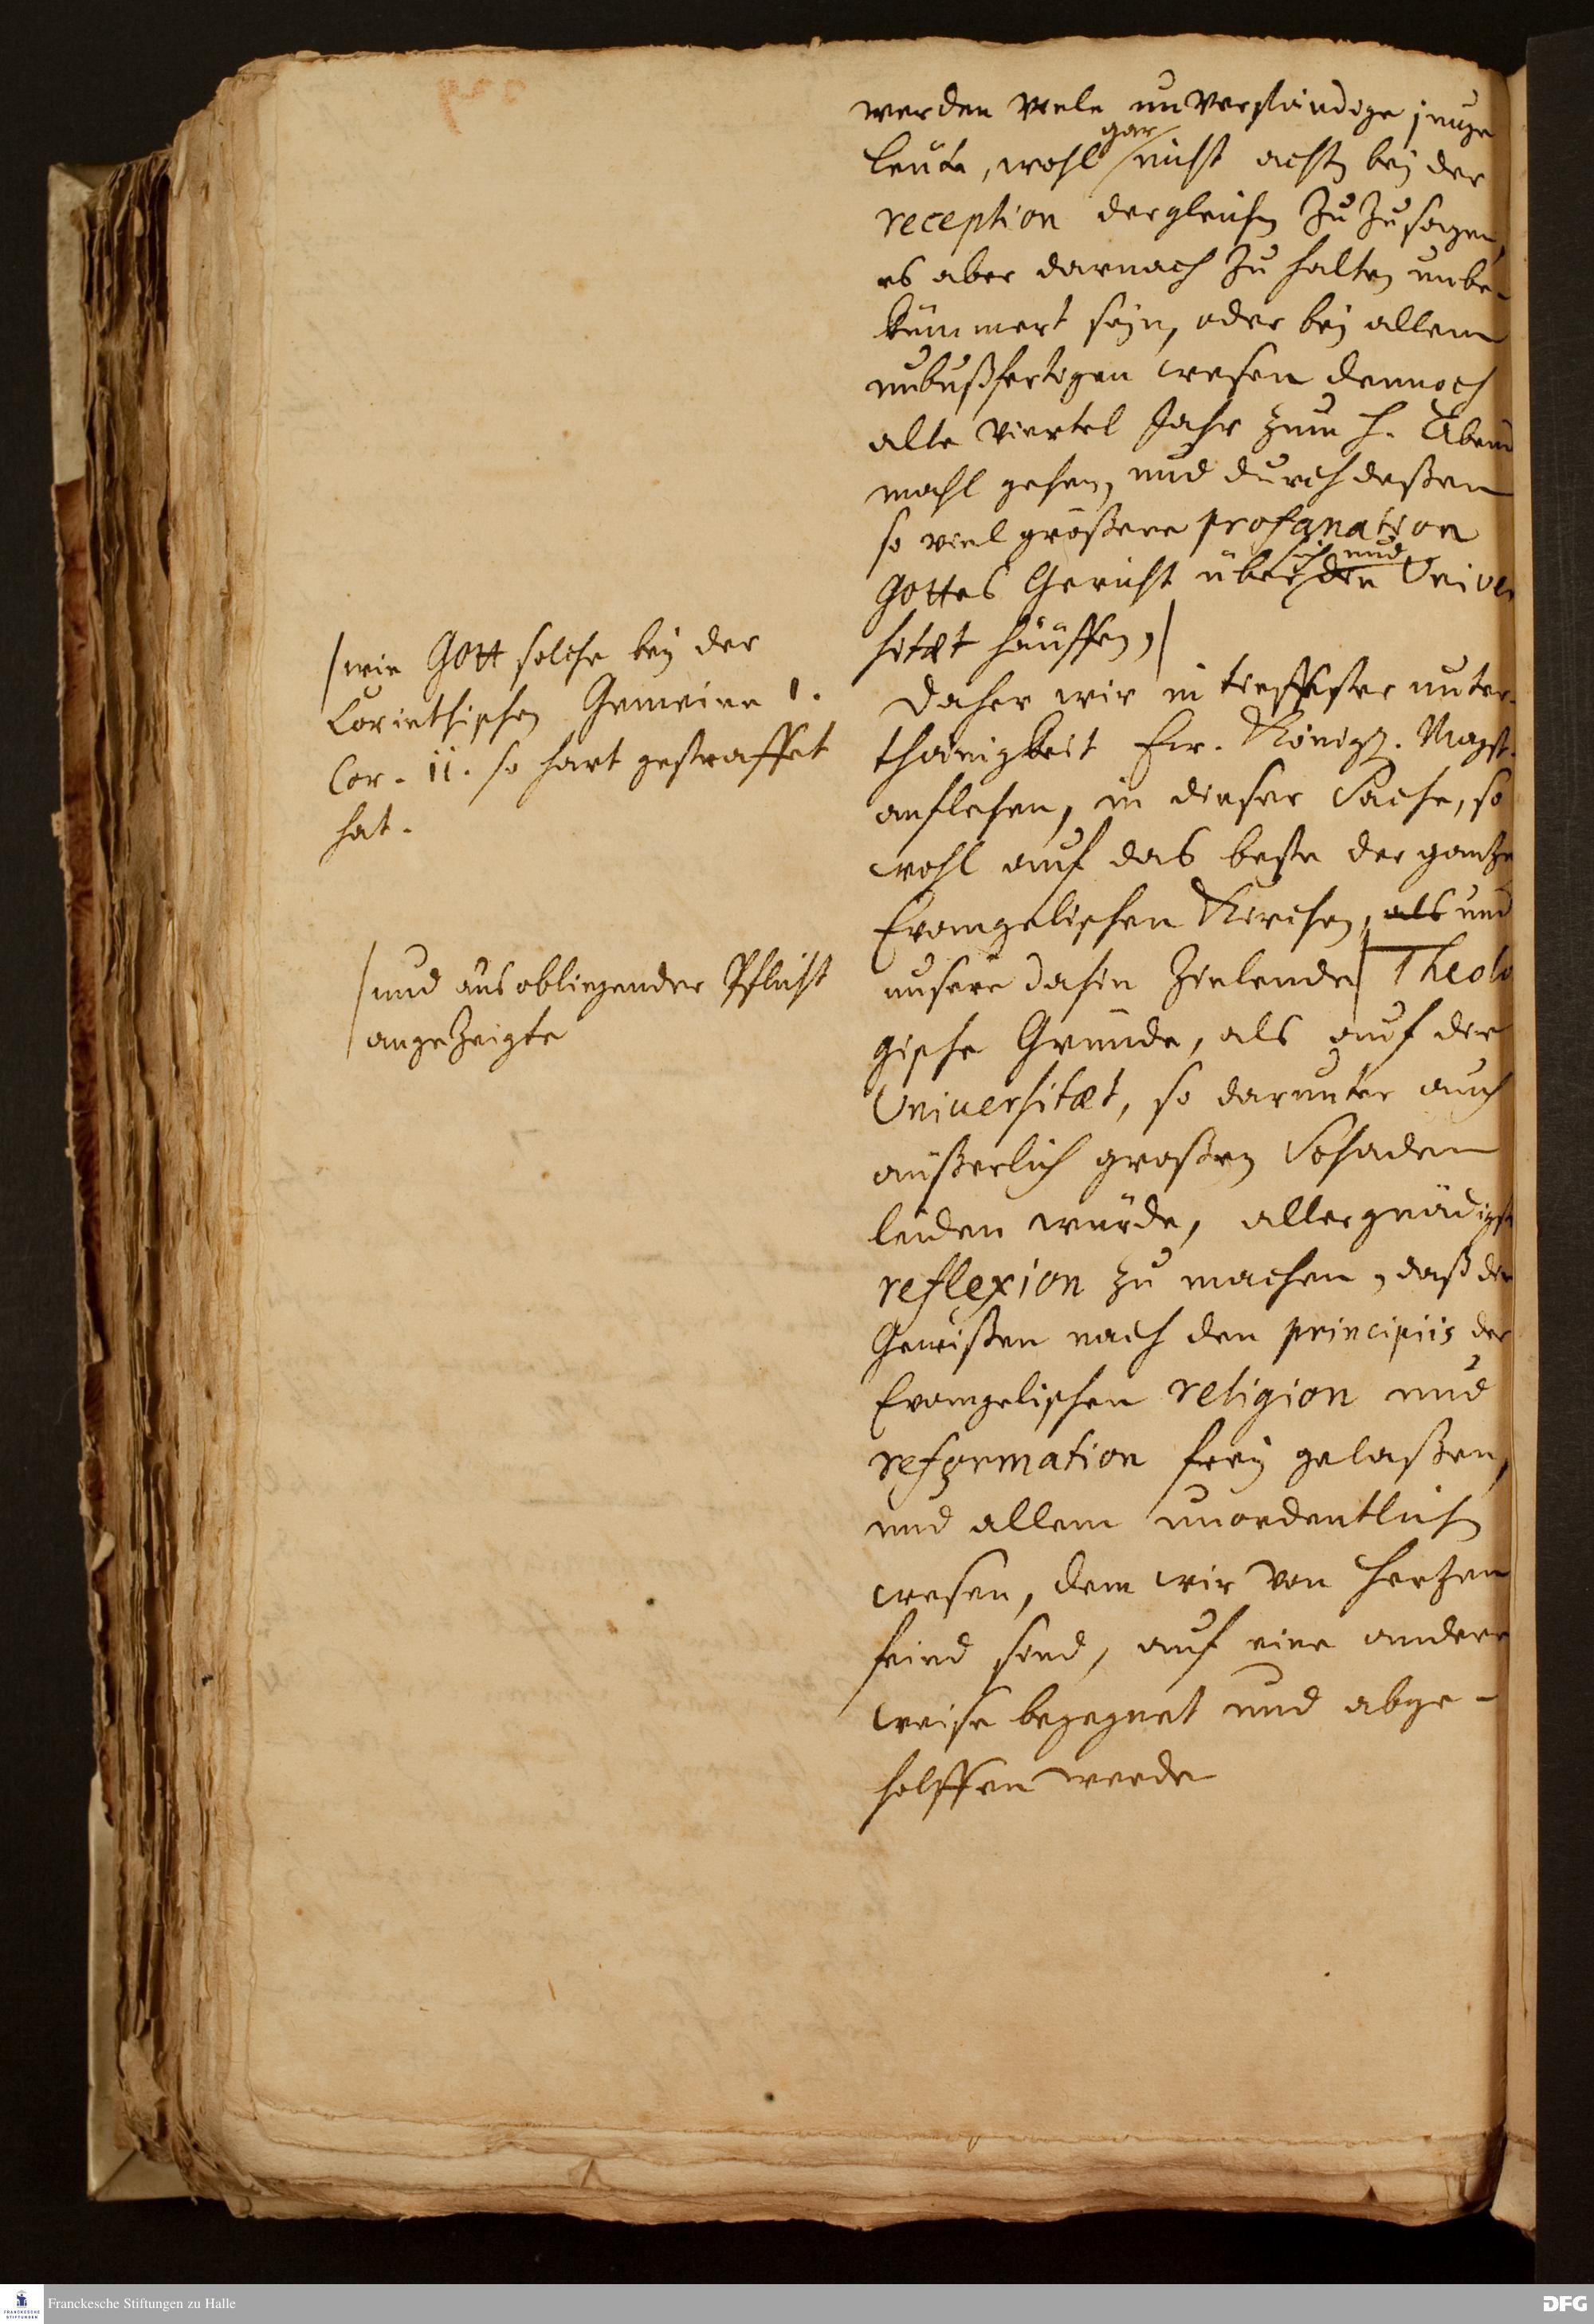 werden viele unverständige junge
leute, wohl gar nicht achten bey der
reception dergleichen zu zusagen,
es aber darnach zu halten unbe-
kümmert seyn, oder bey allem
unbußfertigen wesen dennoch
alle viertel Jahr zum H. Abend
mahl gehen, und durch deßen
so viel größere profanation
Gottes Gericht über sich und den Univer
sitæt häuffen,
/wie Gott solche bey der
Corinthischen Gemeine 1.
Cor. 11. so hart gestraffet
hat.
Daher wir in tieffester unter-
thänigkeit Ew. Königl. Mayst.
anflehen, in dieser Sache, so
wohl auf das beste der gantzen
Evangelischen Kirchen, als und
unsere dahin zielende Theolo
/und aus obliegender Pflicht
angezeigte
gische Gründe, als auf die
Universitæt, so darunter auch
äußerlich großen Schaden
leiden würde, allergnädigst
reflexion zu machen, daß die
Gewißen nach den principiis der
Evangelischen religion und
reformation frey gelaßen,
und allem unordentlichen
wesen, dem wir von Hertzen
feind sind, auf eine andere
weise begegnet und abge-
holffen werde
Franckesche Stiftungen zu Halle
FRANCKESCHE STIFTUNGEN
DFG